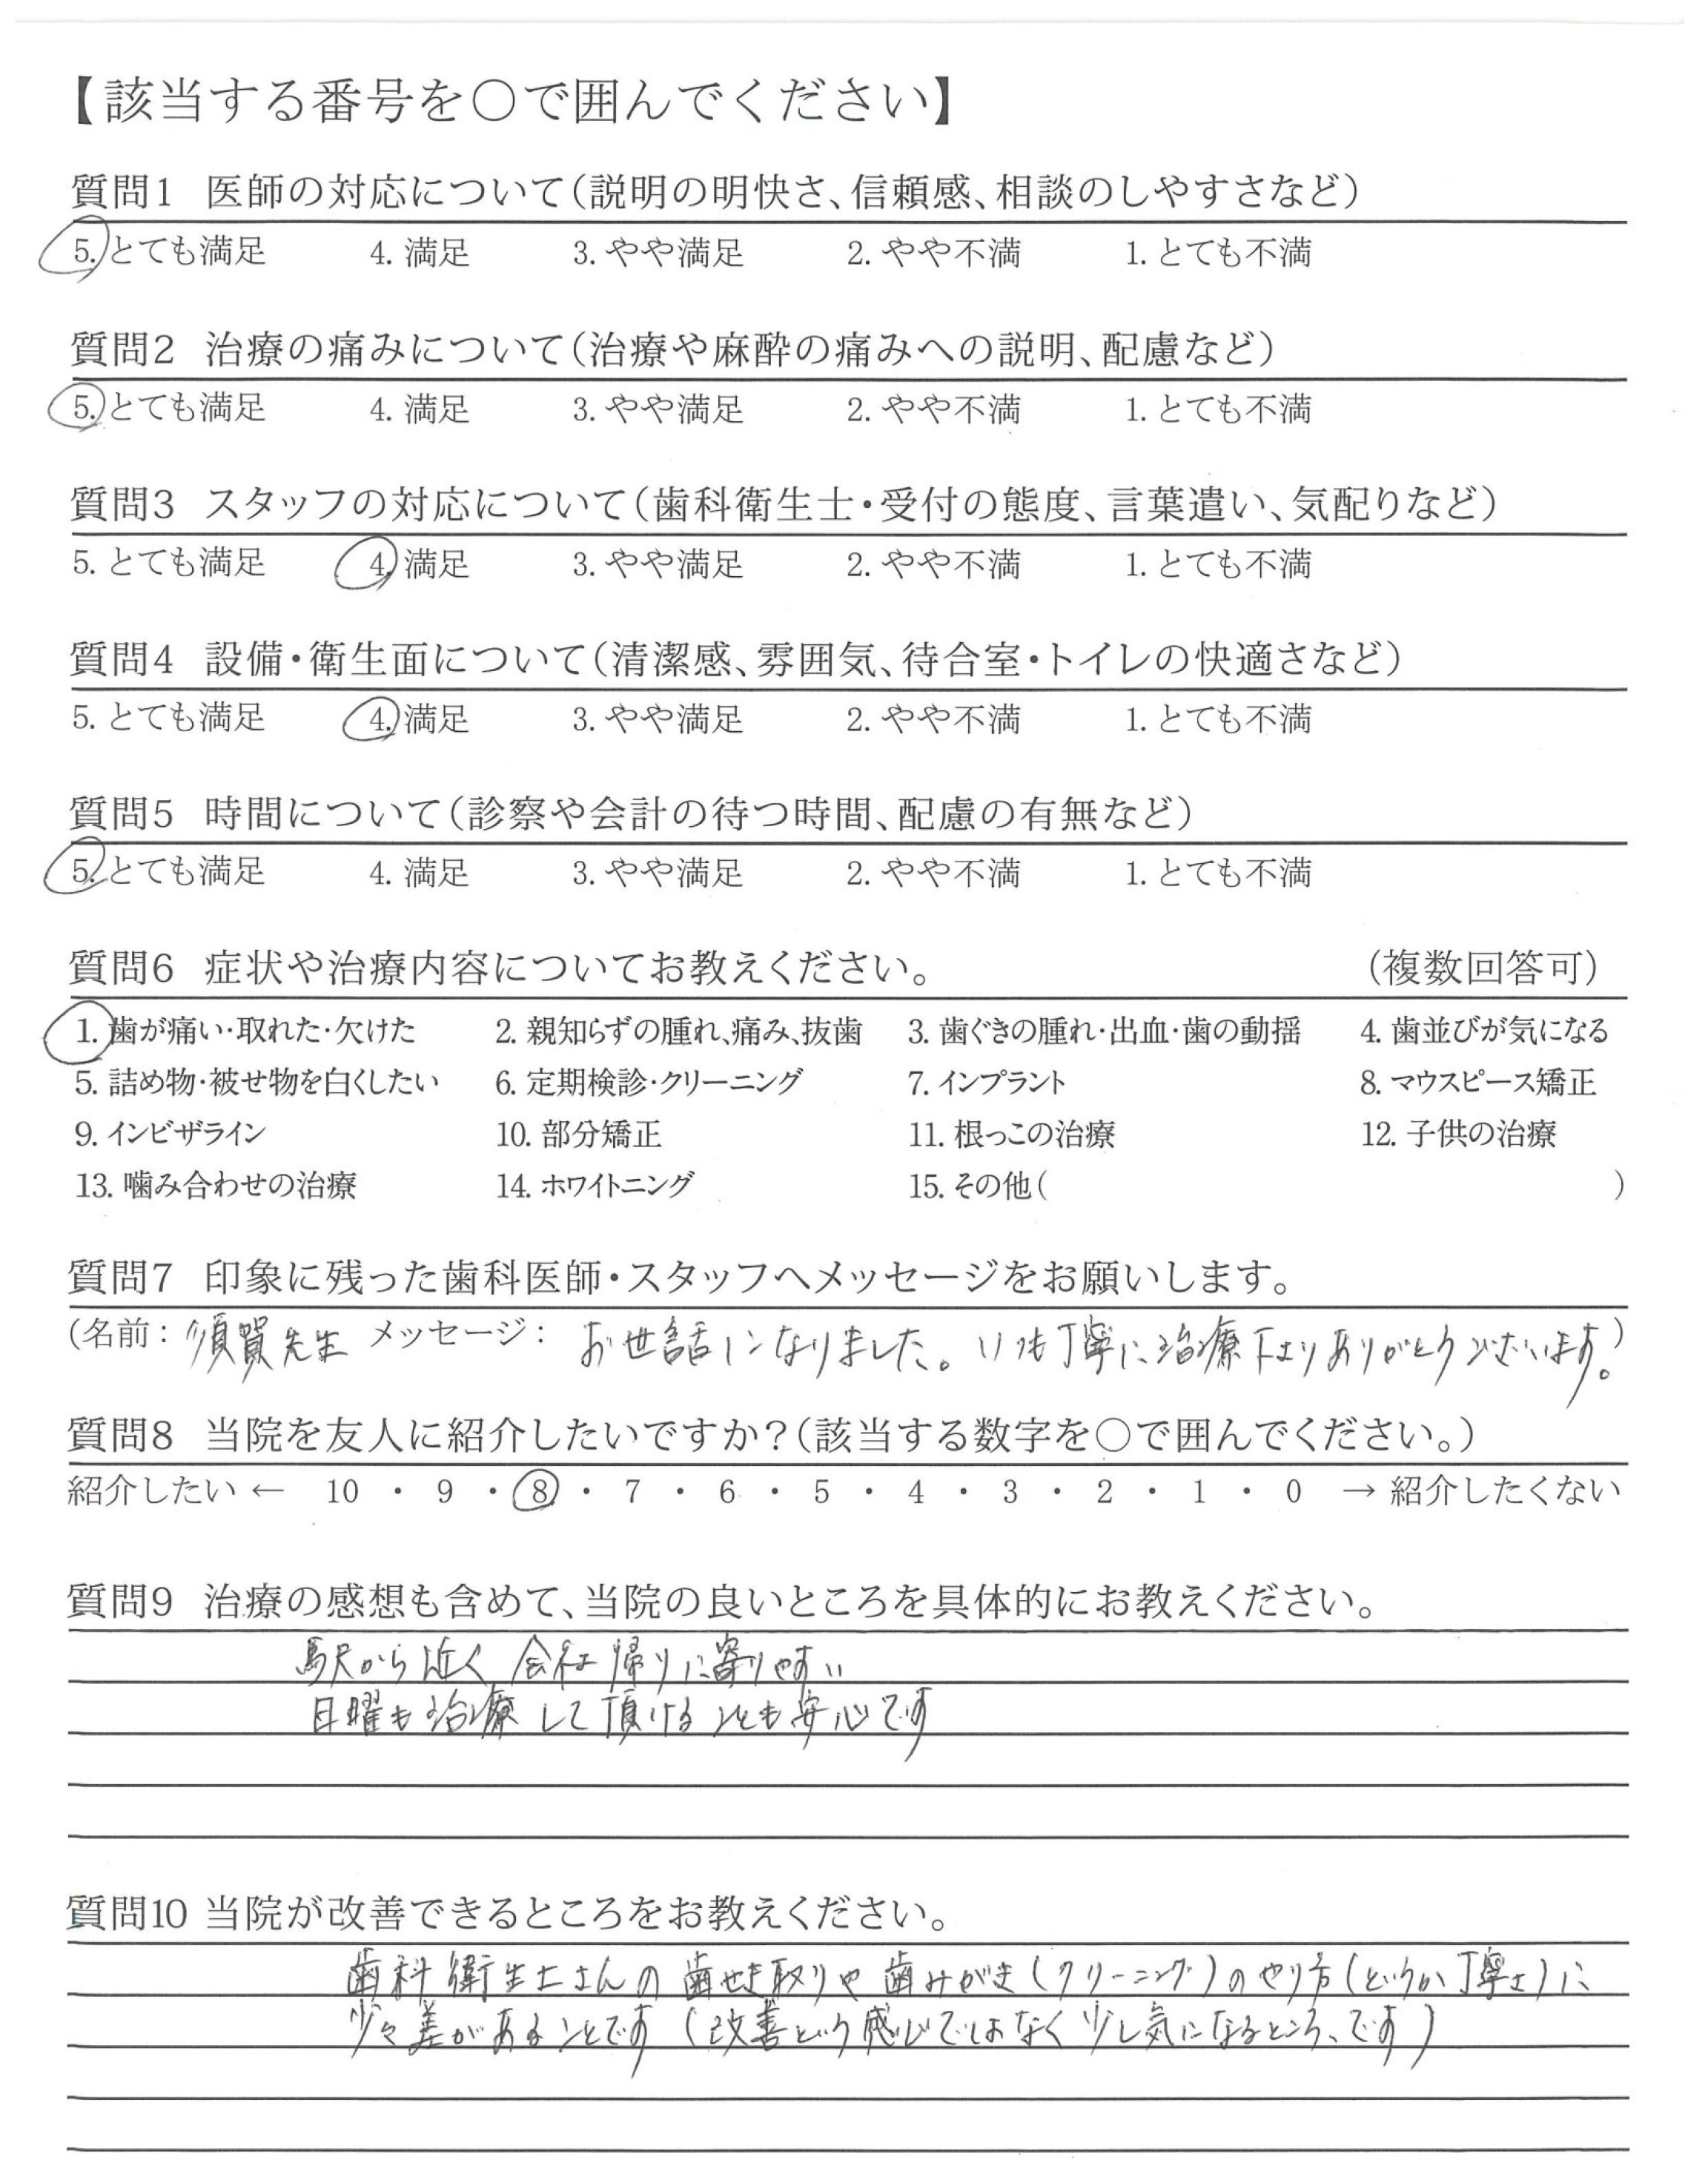 【該当する番号を○で囲んでください】
質問1 医師の対応について(説明の明快さ、信頼感、相談のしやすさなど)
5. とても満足 4. 満足 3. やや満足 2. やや不満 1. とても不満
質問2 治療の痛みについて(治療や麻酔の痛みへの説明、配慮など)
5. とても満足 4. 満足 3. やや満足 2. やや不満 1. とても不満
質問3 スタッフの対応について(歯科衛生士・受付の態度、言葉遣い、気配りなど)
5. とても満足 4. 満足 3. やや満足 2. やや不満 1. とても不満
質問4 設備・衛生面について(清潔感、雰囲気、待合室・トイレの快適さなど)
5. とても満足 4. 満足 3. やや満足 2. やや不満 1. とても不満
質問5 時間について(診察や会計の待つ時間、配慮の有無など)
5. とても満足 4. 満足 3. やや満足 2. やや不満 1. とても不満
質問6 症状や治療内容についてお教えください。 (複数回答可)
1. 歯が痛い・取れた・欠けた 2. 親知らずの腫れ、痛み、抜歯 3. 歯ぐきの腫れ・出血・歯の動揺 4. 歯並びが気になる
5. 詰め物・被せ物を白くしたい 6. 定期検診・クリーニング 7. インプラント 8. マウスピース矯正
9. インビザライン 10. 部分矯正 11. 根っこの治療 12. 子供の治療
13. 噛み合わせの治療 14. ホワイトニング 15. その他( )
質問7 印象に残った歯科医師・スタッフへメッセージをお願いします。
(名前: 須賀先生 メッセージ: お世話になりました。いつも丁寧に治療下さりありがとうございます。)
質問8 当院を友人に紹介したいですか?(該当する数字を○で囲んでください。)
紹介したい ← 10 ・ 9 ・ 8 ・ 7 ・ 6 ・ 5 ・ 4 ・ 3 ・ 2 ・ 1 ・ 0 → 紹介したくない
質問9 治療の感想も含めて、当院の良いところを具体的にお教えください。
駅から近く会社帰りに寄りやすい
日曜も治療して頂けることも安心です
質問10 当院が改善できるところをお教えください。
歯科衛生士さんの歯せき取りや歯みがき(クリーニング)のやり方(というか丁寧さ)に
少々差があることです(改善という感じではなく少し気になるところ、です)